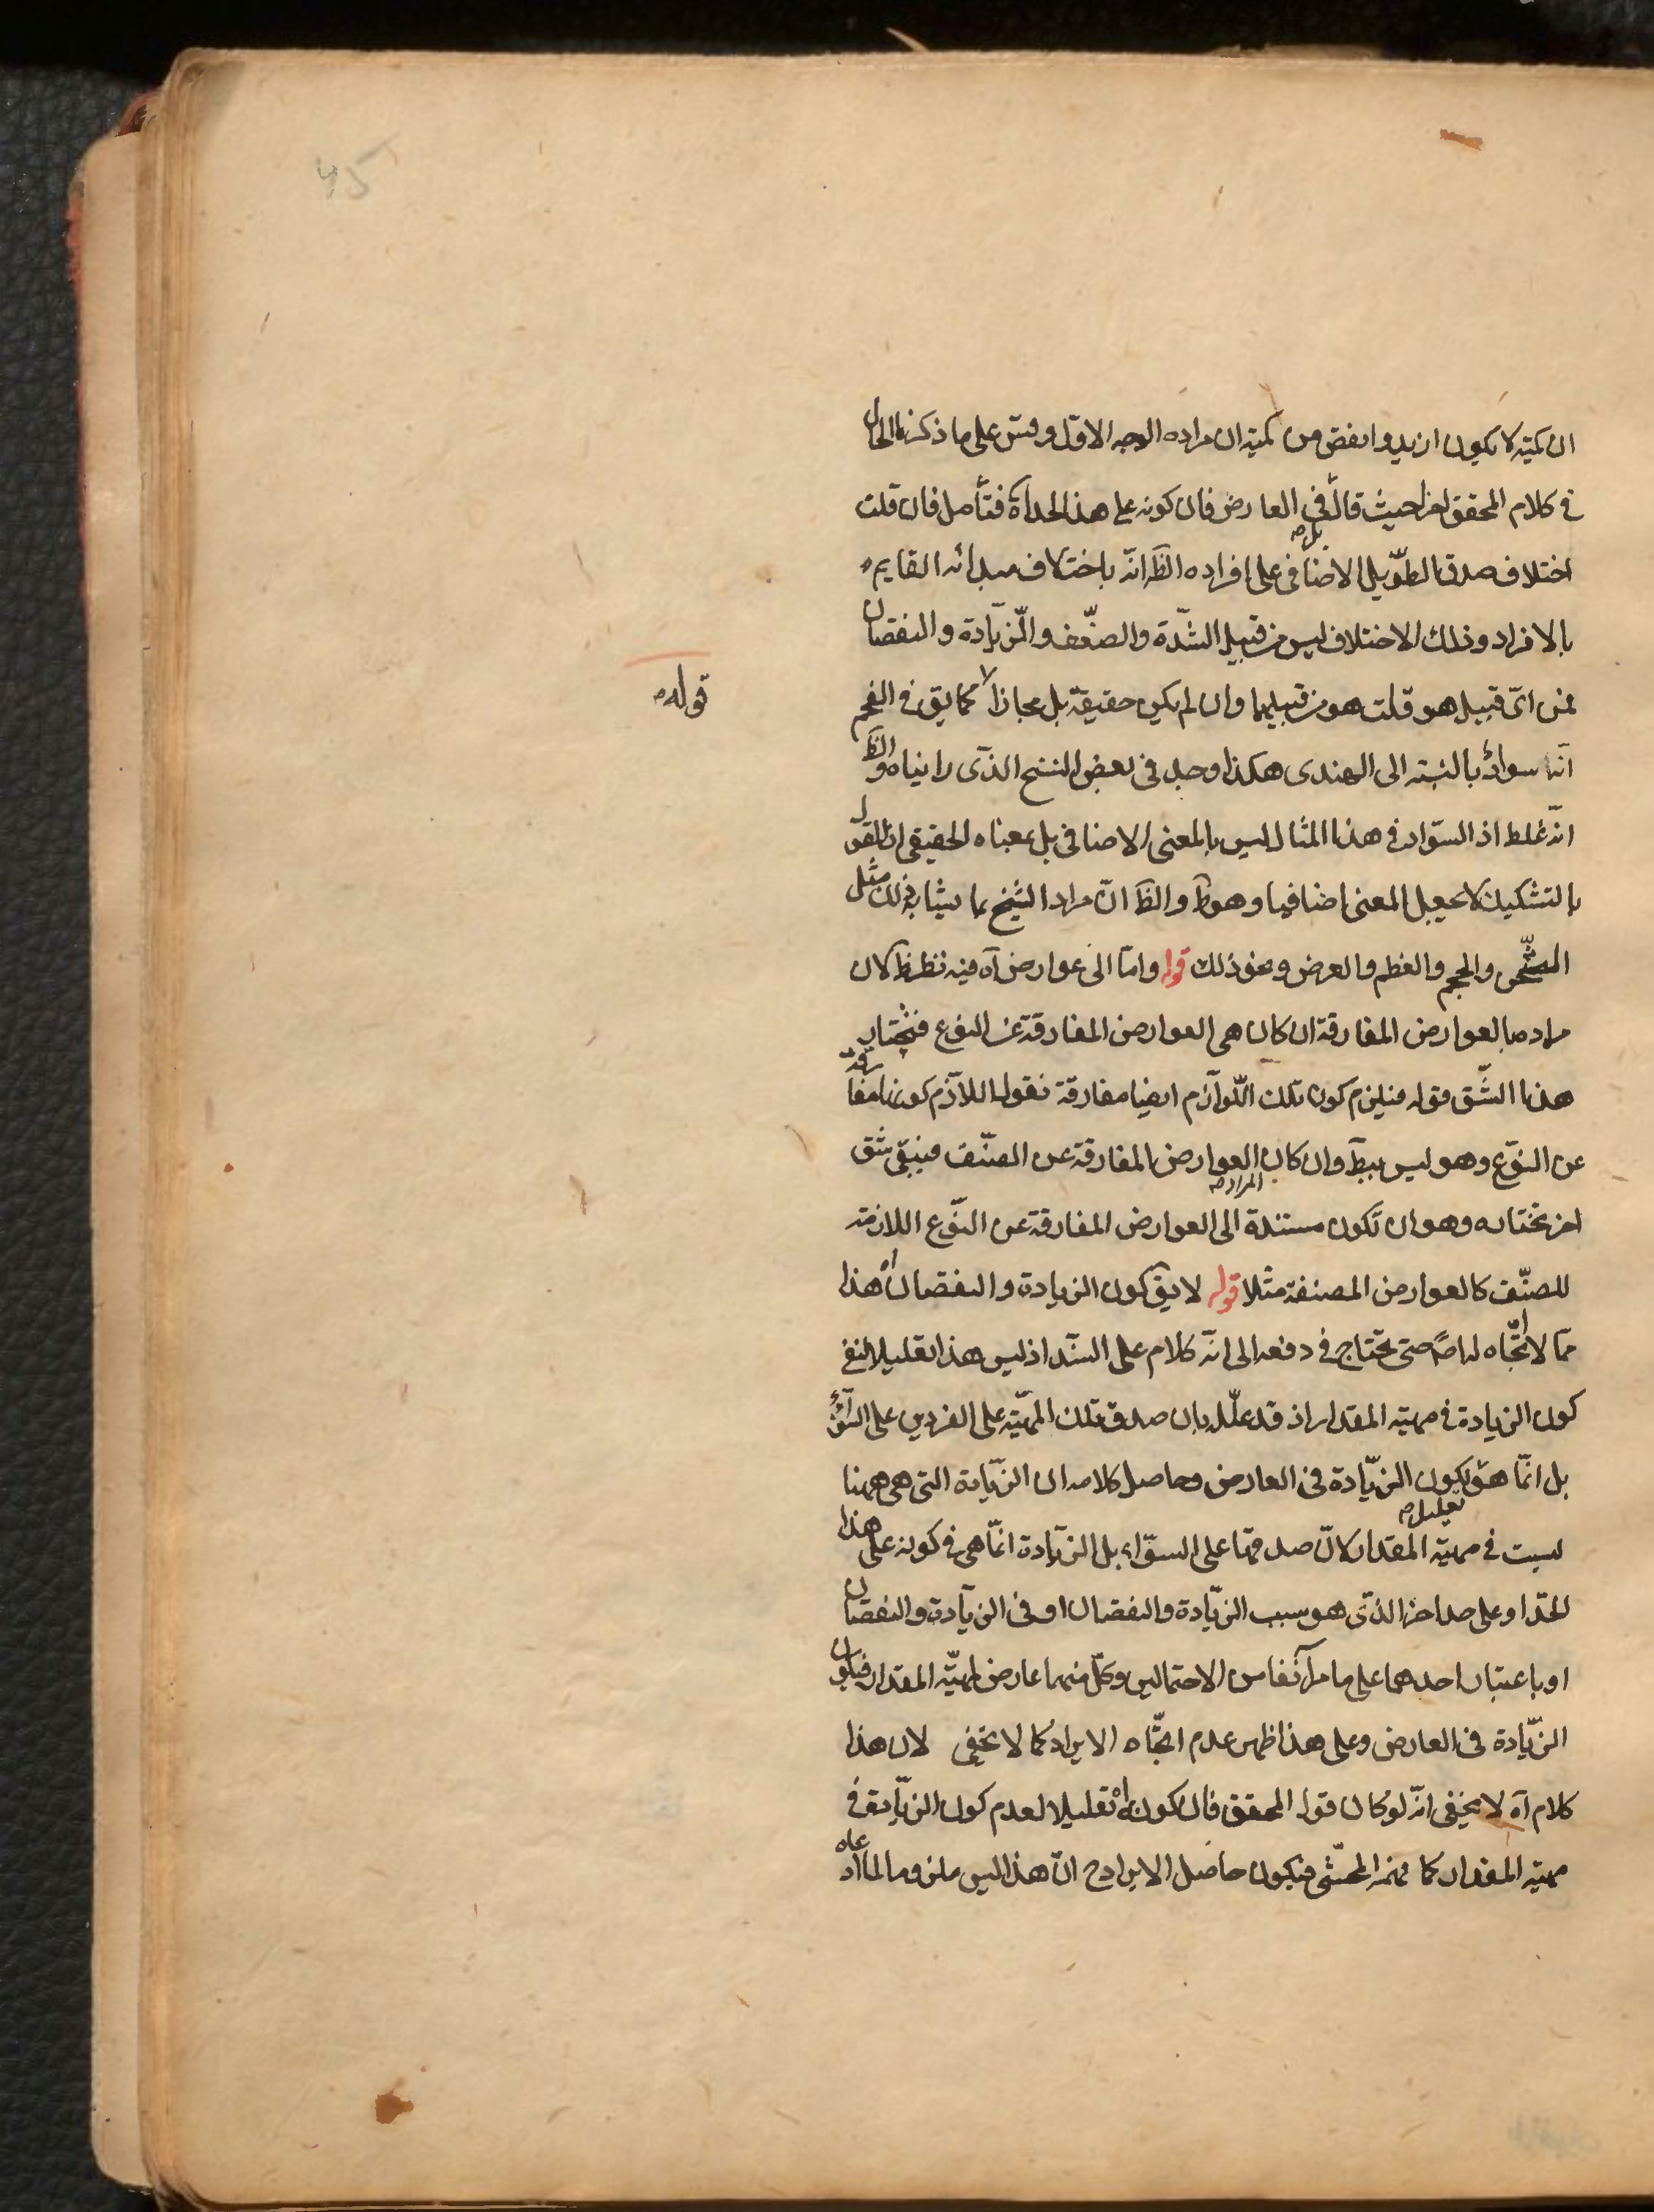 ان كميته لا يكون ازيد وانقص من كميته ان مراده الوجه الاول وقس على ما ذكرنا الحال
في كلام المحقق لغرا حيث قال بل في العارض فان كونه على هذا الحد آه فتأمل فان قلت
اختلاف صدق الطويل الاضافي على افراده الظ انه باختلاف مبدائه القايم
بالافراد وذلك الاختلاف ليس من قبيل الشّدة والضّعف والزّيادة والنقصان
فمن اىّ قبيل هو قلت هو من قبيلهما وان لم يكن حقيقة بل مجازا كما يق في الفحم
انه سواد بالنسبة الى الهندى هكذا وجد في بعض النسخ الذى رايناه والظ
انّه غلط اذ السّواد في هذا المثال ليس بالمعنى الاضافي بل بمعناه الحقيقي اذ القول
بالتشكيك لا يجعل المعنى اضافيا وهو ظ والظ انّ مراد الشيخ بما يشابه ذلك مثل
والحجم والعظم والعرض ونحو ذلك قوله وامّا الى عوارض آه فيه نظر ظ لان
مراده بالعوارض المفارقة ان كان هي العوارض المفارقة عن النوع فنختار
هذا الشّق قوله فيلزم كون تلك اللّوازم ايضا مفارقة نقول اللازم كونها مفارقة
عن النّوع وهو ليس ببط وان كان المراد العوارض المفارقة عن الصنّف فيبقى شق
اخر نختاره وهو ان تكون مستندة الى العوارض المفارقة عن النّوع اللازمة
للصنّف كالعوارض المصنفة مثلا قوله لا يق كون الزيادة والنقصان آه هذا
ممّا لا اتّجاه له اصً حتى يحتاج في دفعه الى انّه كلام على السّند اذ ليس هذا تعليلا لنفى
كون الزيادة في مهيّة المقدار اذ قد علّله بان صدق تلك المهيّة على الفردين على السّواء
بل انّما هو تعليل لكون الزّيادة في العارض وحاصل كلامه ان الزّيادة التى هى ههنا
ليست في مهيّة المقدار لانّ صدقها على السوّاء بل الزّيادة انّما هى في كونه على هذا
الحدّ او على حد اخر الذّى هو سبب الزّيادة والنقصان او في الزّيادة والنقصان
او باعتبار احدهما على ما مر آنفا من الاحتمالين وكلّ منهما عارض لمهيّة المقدار فيكون
الزّيادة في العارض وعلى هذا ظهر عدم اتّجاه الايراد كما لا يخفى لان هذا
كلام آه لا يخفى انّه لو كان قول المحقق فان كونه آه تعليلا لعدم كون الزّيادة في
مهيّة المقدار كما فهمه المحشّى فيكون حاصل الايراد ح انّ هذا ليس ملزوما لما ادعاه
قوله